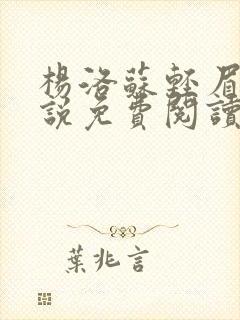 楊洛蘇輕眉
說免費閱讀
葉兆言